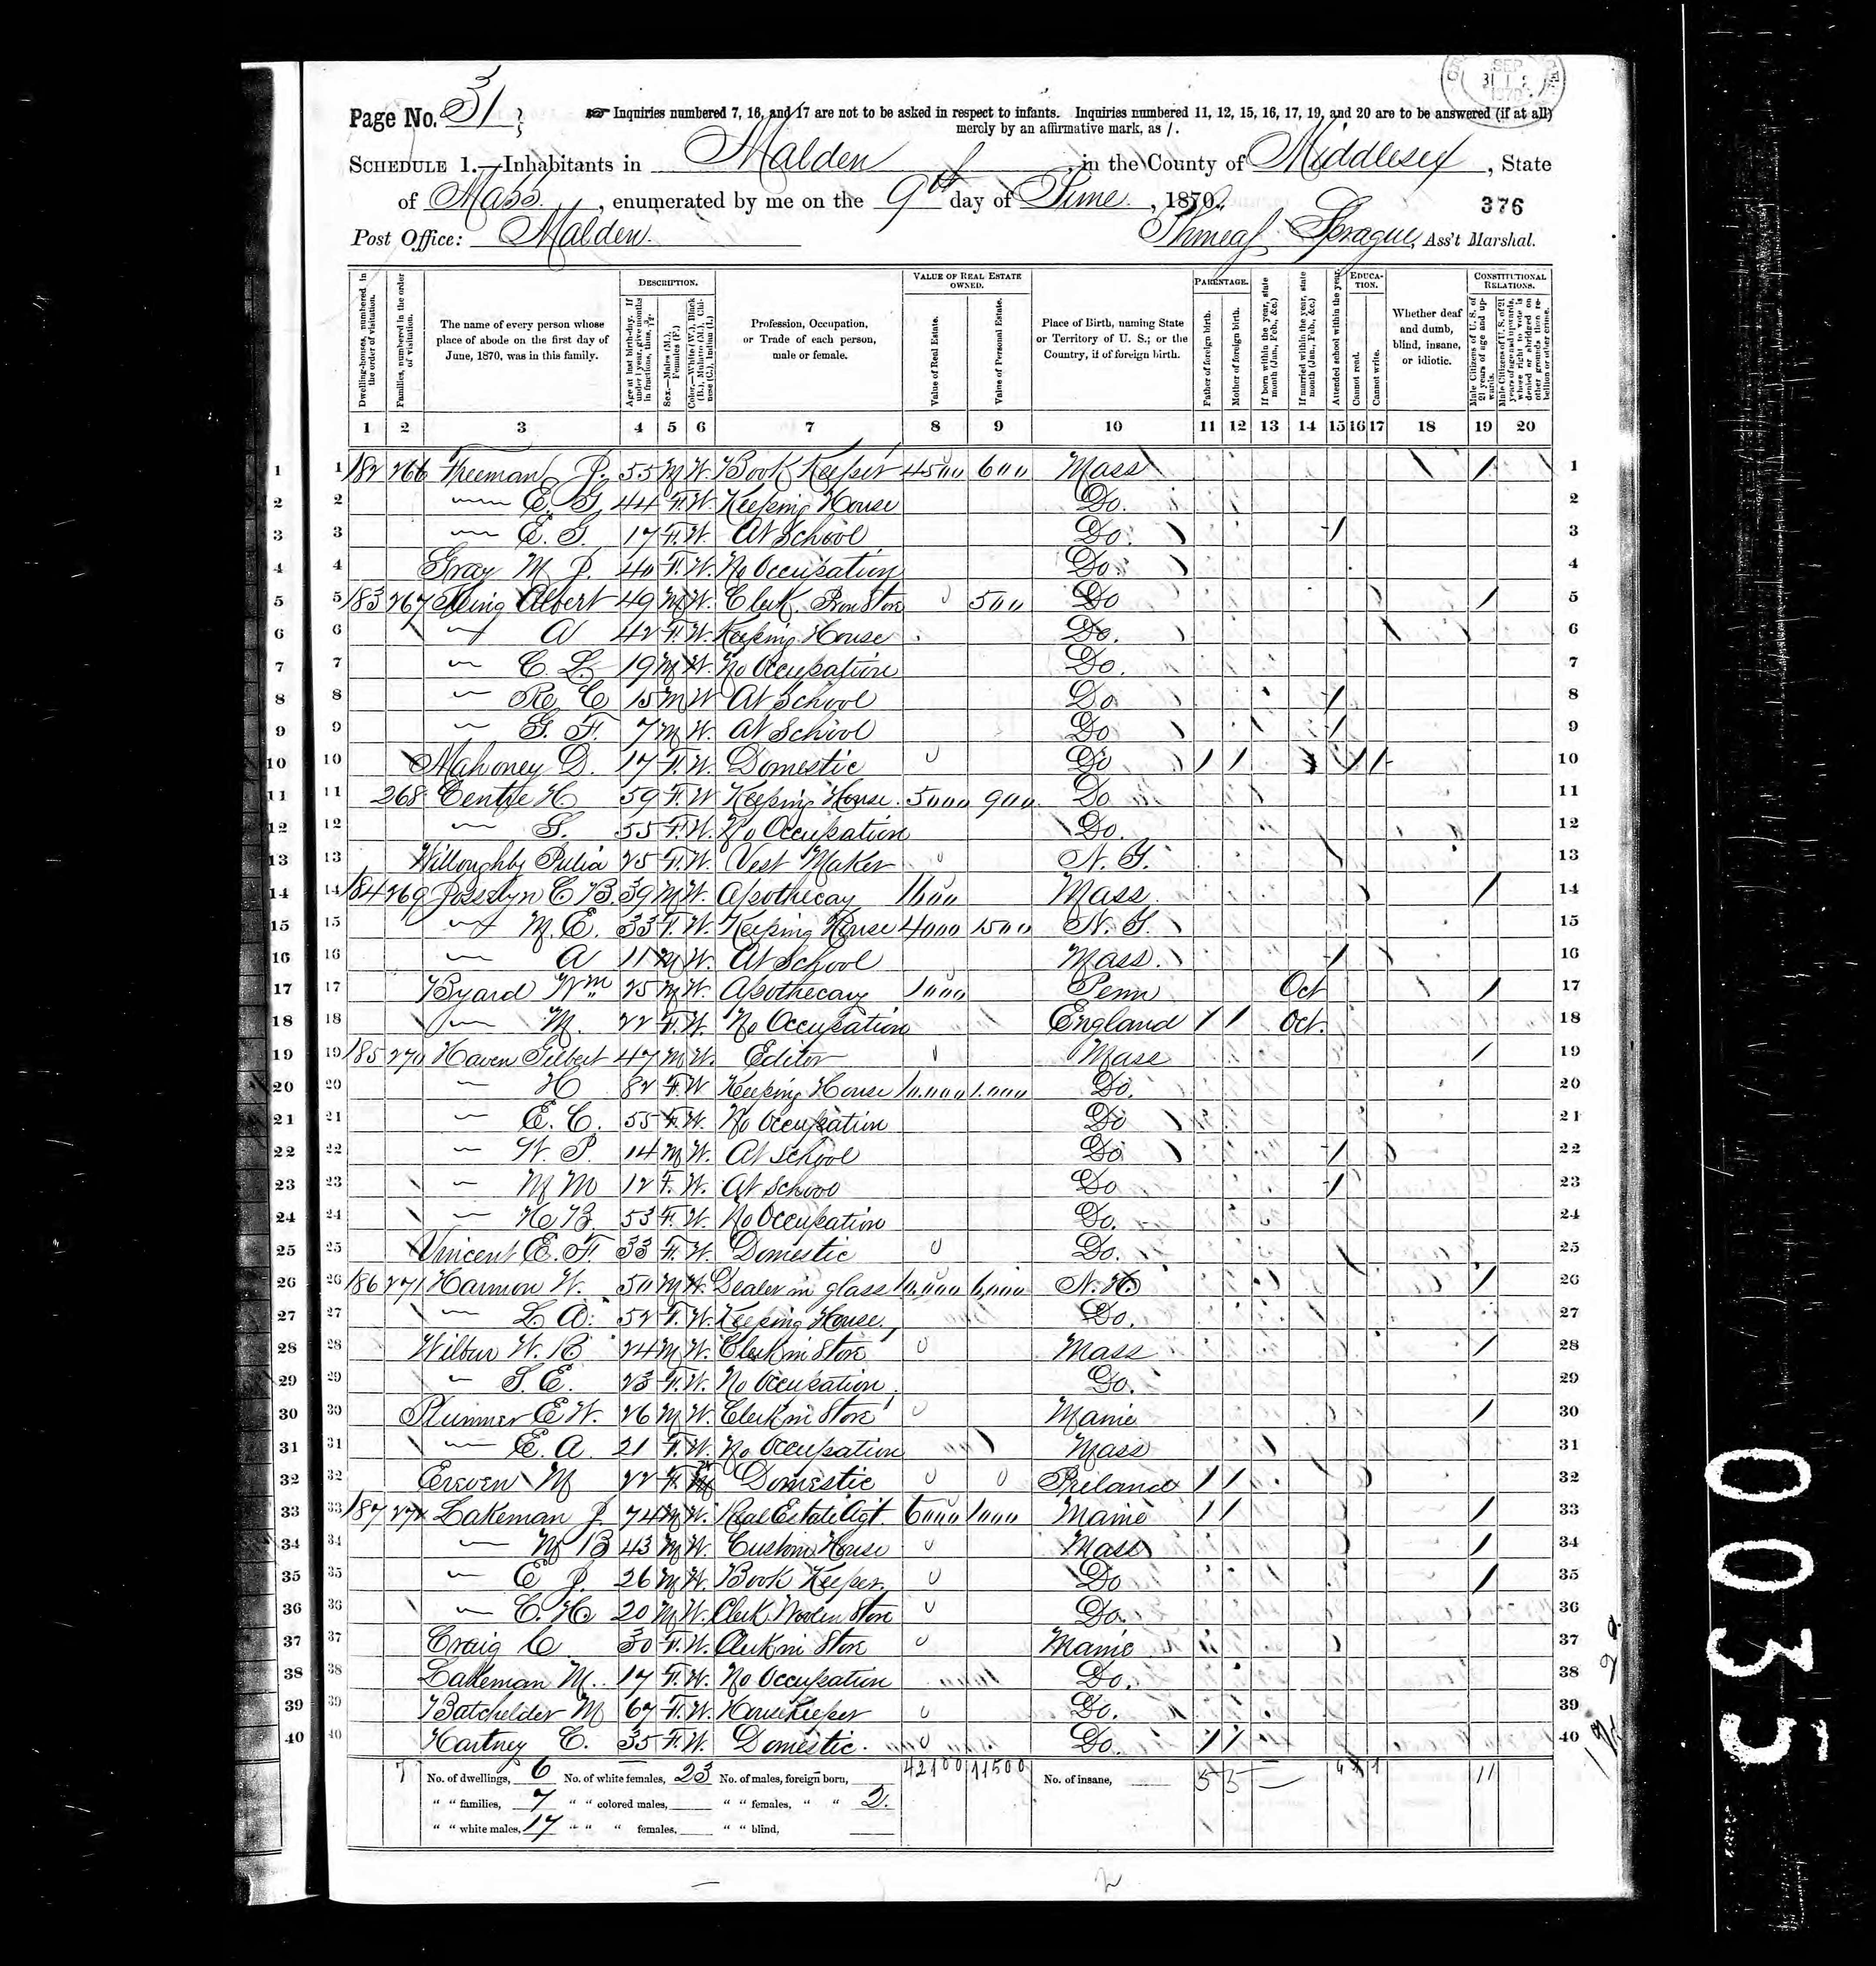 Page No. 31
Inquiries numbered 7, 16, and 17 are not to be asked in respect to infants. Inquiries numbered 11, 12, 15, 16, 17, 19, and 20 are to be answered (if at all)
merely by an affirmative mark, as /.
SCHEDULE 1.—Inhabitants in Malden, in the County of Middlesex, State
of Mass., enumerated by me on the 9th day of June, 1870.
376
Post Office: Malden. Sprague, Ass't Marshal.
DESCRIPTION. VALUE OF REAL ESTATE OWNED. PARENTAGE. EDUCATION. CONSTITUTIONAL RELATIONS.
Dwelling-houses, numbered in the order of visitation.
Families, numbered in the order of visitation.
The name of every person whose place of abode on the first day of June, 1870, was in this family.
Age at last birth-day. If under 1 year, give months in fractions, thus, 3/12.
Sex.—Males (M.), Females (F.)
Color.—White (W.), Black (B.), Mulatto (M.), Chinese (C.), Indian (I.)
Profession, Occupation, or Trade of each person, male or female.
Value of Real Estate.
Value of Personal Estate.
Place of Birth, naming State or Territory of U. S.; or the Country, if of foreign birth.
Father of foreign birth.
Mother of foreign birth.
If born within the year, state month (Jan., Feb., &c.)
If married within the year, state month (Jan., Feb., &c.)
Attended school within the year.
Cannot read.
Cannot write.
Whether deaf and dumb, blind, insane, or idiotic.
Male Citizens of U. S. of 21 years of age and upwards.
Male Citizens of U. S. of 21 years of age and upwards, whose right to vote is denied or abridged on other grounds than rebellion or other crime.
1 2 3 4 5 6 7 8 9 10 11 12 13 14 15 16 17 18 19 20
1 182 266 Freeman J. 55 M W. Book Keeper 4500 600 Mass / 1
2 — E. G. 44 F. W. Keeping House Do. 2
3 — E. G. 17 F. W. At School Do. / 3
4 Gray M J. 40 F. W. No Occupation Do. 4
5 183 267 Albert 49 M W. Clerk Store 500 Do / 5
6 — A 42 F. W. Keeping House Do. 6
7 — C. L. 19 M W. No Occupation Do. 7
8 — C 15 M W At School Do. / 8
9 — G. F. 7 M W. At School Do / 9
10 Mahoney D. 17 F. W. Domestic Do / / / / 10
11 268 H 59 F. W Keeping House. 5000 900 Do 11
12 — S. 55 F. W. No Occupation Do. 12
13 Willoughby Julia 25 F. W. Vest Maker 13
14 184 269 Josslyn C B. 39 M W. Apothecay 1600 Mass / 14
15 — M. E. 33 F. W. Keeping House 4000 1500 15
16 — A 11 M W. At School Mass. / 16
17 Byard Wm 25 M W. Apothecary 1000 Penn Oct / 17
18 — M. 22 F. W. No Occupation England / / Oct. 18
19 185 270 Haven Gilbert 47 M W. Editor Mass / 19
20 — H 82 F. W Keeping House 10.000 1.000 Do. 20
21 — E. C. 55 F. W. No Occupation Do 21
22 — W. P. 14 M W. At School Do / 22
23 — M M 12 F. W. At School Do / 23
24 — H B. 53 F. W. No Occupation Do. 24
25 Vincent E. F. 33 F. W. Domestic Do. 25
26 186 271 Harmon W. 50 M W. Dealer in glass 10,000 6,000 N. H / 26
27 — L A. 52 F. W. Keeping House. Do. 27
28 Wilbur W. R 24 M W. Clerk in Store Mass / 28
29 — S. E. 23 F. W. No Occupation Do. 29
30 Plummer E W. 26 M W. Clerk in Store Maine / 30
31 — E. A. 21 F. W. No Occupation Mass 31
32 M 22 F. W Domestic Ireland / / 32
33 187 272 Lakeman J. 74 M W. Real Estate Agt. 6000 1000 Maine / / / 33
34 — M B 43 M W. Custom House Mass / 34
35 — E J. 26 M W. Book Keeper Do / 35
36 — C. H 20 M W. Clerk Woolen Store Do. 36
37 Craig C 30 F. W. Clerk in Store Maine 37
38 Lakeman M. 17 F. W. No Occupation Do. 38
39 Batchelder M 67 F. W. Housekeeper Do. 39
40 Hartney C. 35 F. W. Domestic. Do. / / 40
No. of dwellings, 6 No. of white females, 23 No. of males, foreign born, 42100 11500 No. of insane, 5 5 — 11
" " families, 7 " " colored males, " " females, " " 2.
" " white males, 17 " " " females, " " blind,
0035